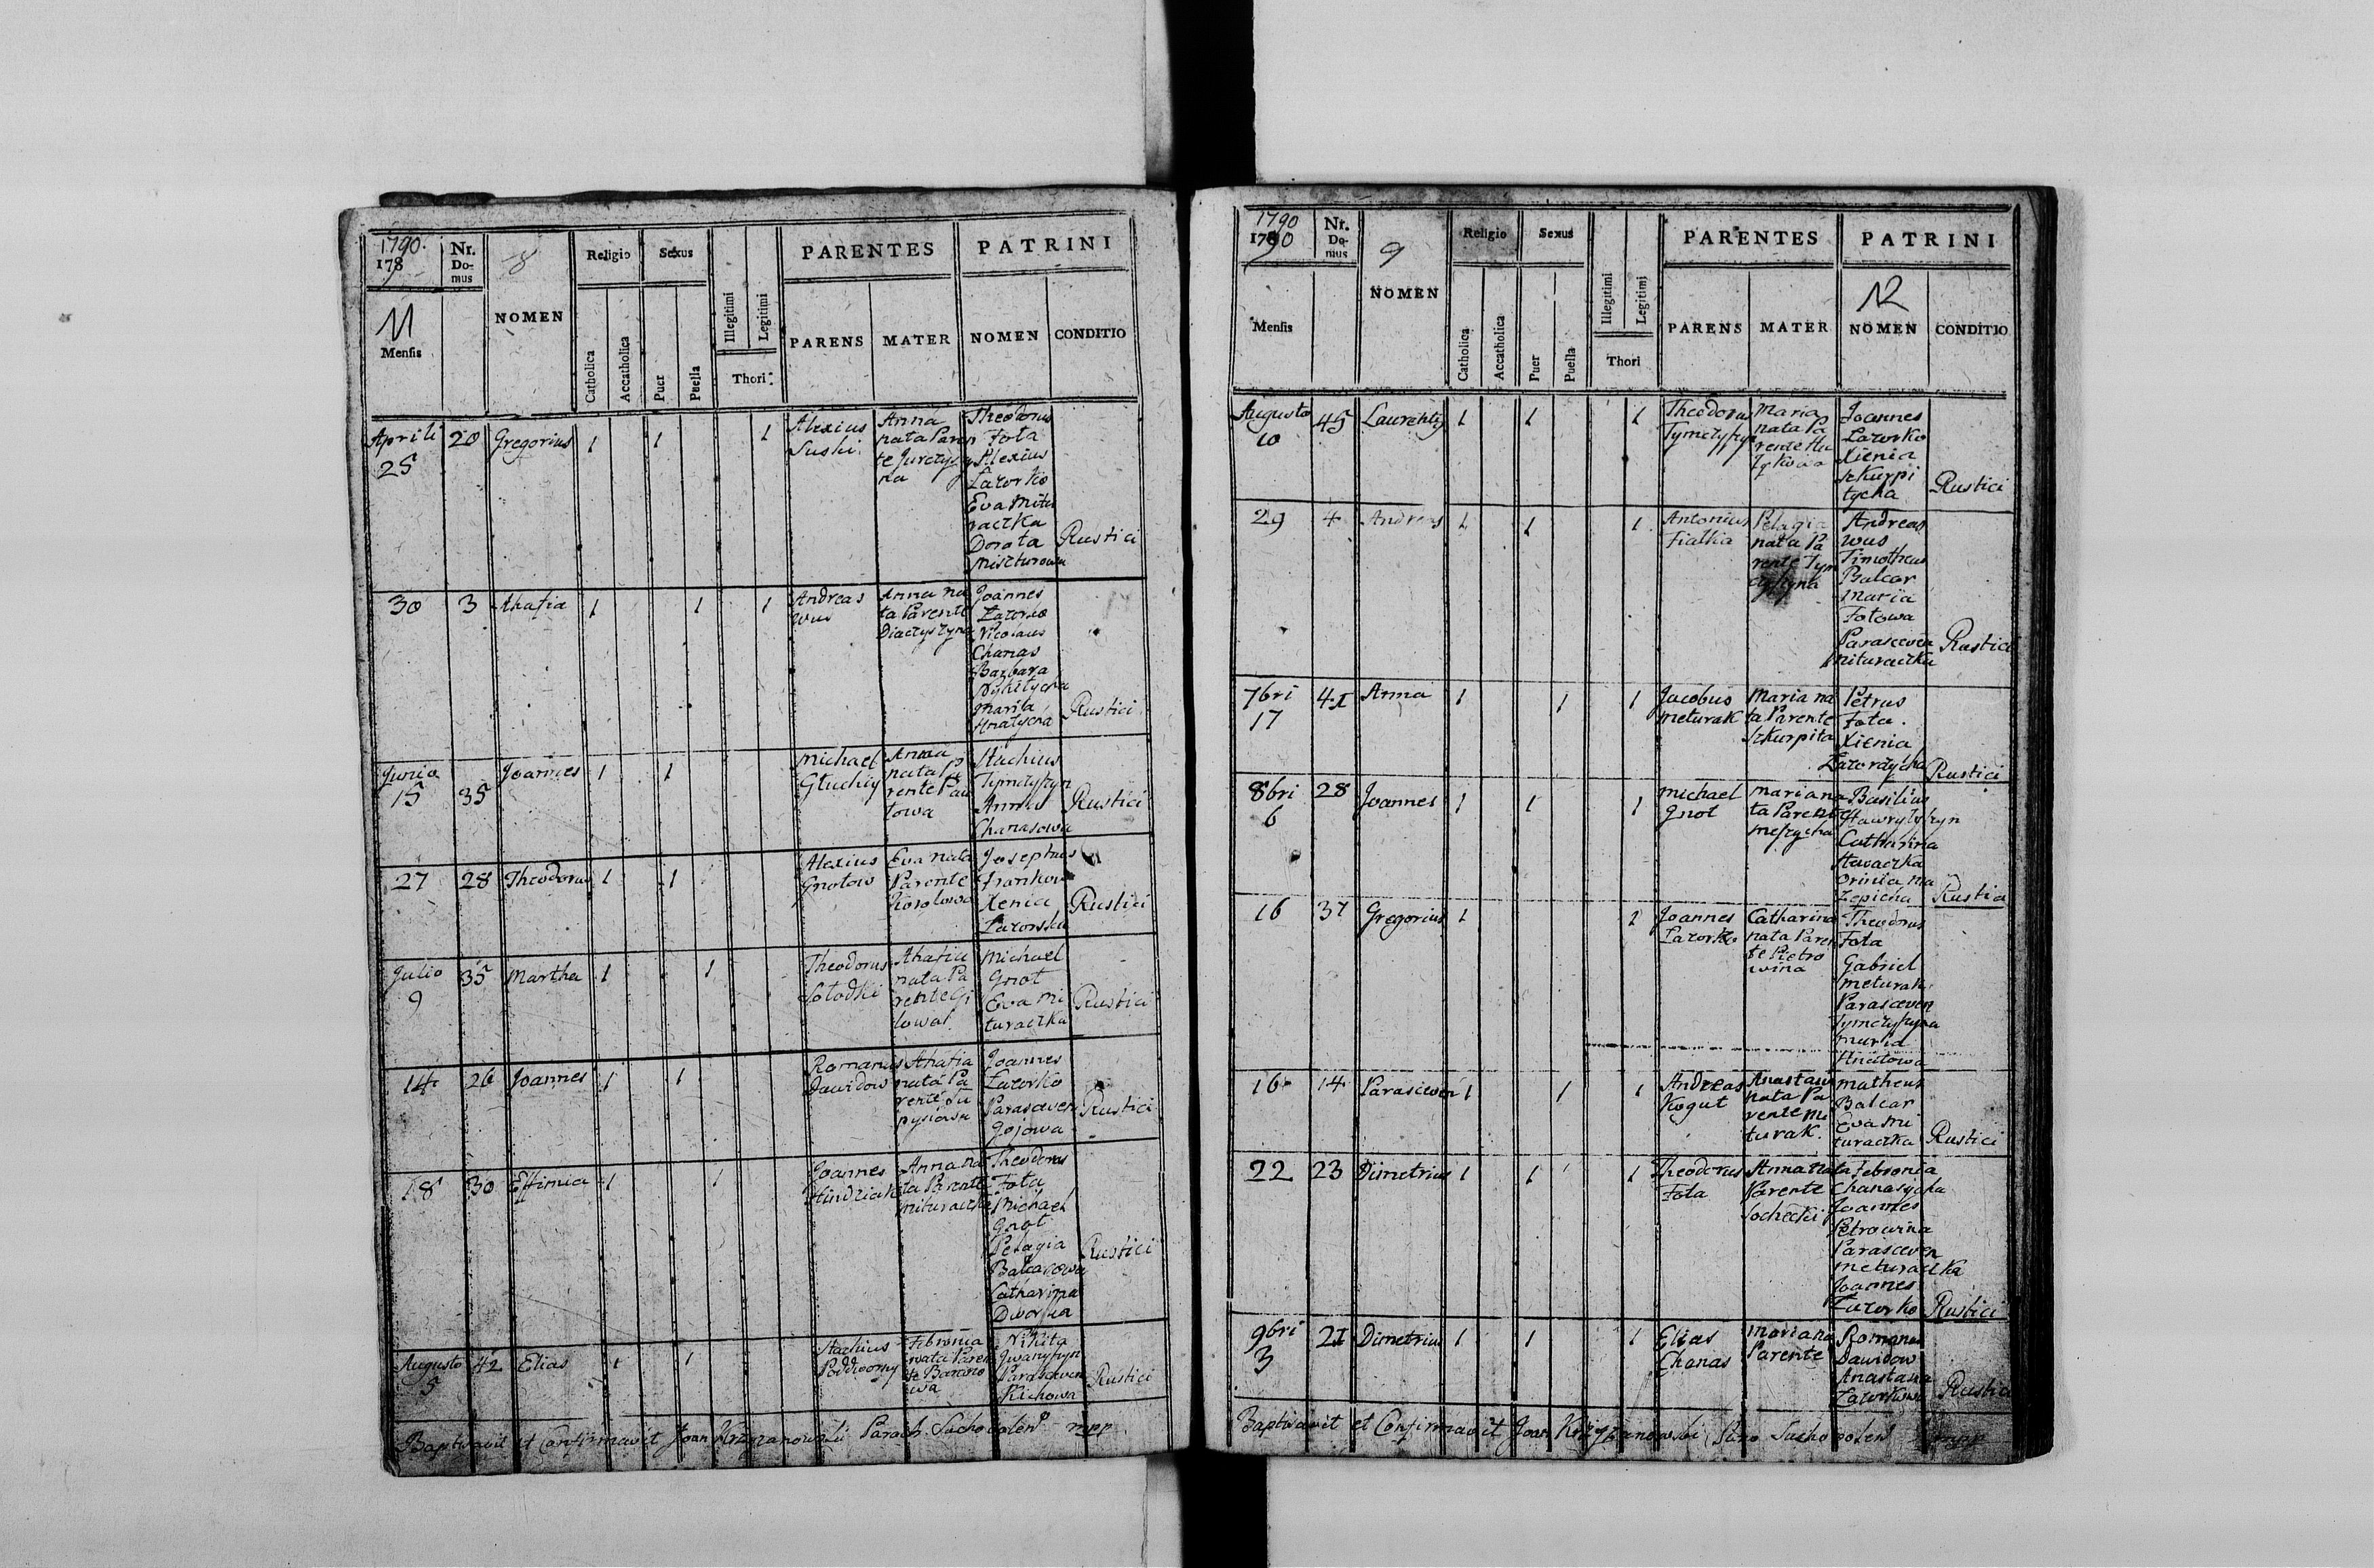 1790.
178
Nr.
Do-
mus
8
NOMEN
Religio
Sexus
Catholica
Accatholica
Puer
Puella
Illegitimi
Legitimi
Thori
PARENTES
PATRINI
11
Mensis
PARENS
MATER
NOMEN
CONDITIO
Aprili
25
20
Gregorius
1
1
1
Alexius
Suski
Anna
nata Paren
na
Theodorus
Fota
Alexius
Lazorko
Eva Mitu
raczka
Dorota
Miszturowa
Rustici
30
3
Ahafia
1
1
1
Andreas
Wus
Anna na
ta Parente
Diaczyszyna
Joannes
Lazorko
Nicolaus
Chanas
Barbara
Nykitycha
Maria
Hnatycha
Rustici
Junio
15
35
Joannes
1
1
Michael
Gluchiy
Anna
nata Pa
rente Pau
lowa
Stachius
Tymczyszyn
Anna
Chanasowa
Rustici
27
28
Theodorus
1
1
Alexius
Gnotow
Eva nata
Parente
Korolowa
Josephus
Frankow
Xenia
Lazorska
Rustici
Julio
9
35
Martha
1
1
Theodorus
Solodki
Ahafia
nata Pa
rente Gi
lowa
Michael
Gnot
Eva Mi
turaczka
Rustici
14
26
Joannes
1
1
Romanus
Dawidow
Ahafia
nata Pa
rente Lu
pysiowa
Joannes
Lazorko
Parasceven
Gojowa
Rustici
18
30
Effimia
1
1
Joannes
Hindziak
Anna na
ta Parente
Mituraczka
Theodorus
Fota
Michael
Gnot
Pelagia
Balcarowa
Catharina
Dworska
Rustici
Augusto
5
42
Elias
1
1
Stachius
Poddworny
Febronia
nata Paren
te Barano
wa
Nikita
Jwanyszyn
Parasceven
Kichowa
Rustici
Baptisavit et Confirmavit Joan Krzyzanowski Paroch. Suchovolens mpp
1790
1780
90
Nr.
Do-
mus
9
NOMEN
Religio
Sexus
Catholica
Accatholica
Puer
Puella
Illegitimi
Legitimi
Thori
PARENTES
PATRINI
12
Mensis
PARENS
MATER
NOMEN
CONDITIO
Augusto
10
45
Laurentij
1
1
1
Theodorus
Tymczyszyn
Maria
nata Pa
rente
Joannes
Lazorko
Xienia
Szkurpi
tycha
Rustici
29
4
Andreas
1
1
1
Antonius
Fialka
Pelagia
nata Pa
rente Tym
czyszyna
Andreas
Wus
Timotheus
Balcar
Maria
Fotowa
Parasceven
Mituraczka
Rustici
7bri
17
41
Anna
1
1
1
Jacobus
Meturak
Maria na
ta Parente
Szkurpita
Petrus
Fota
Xienia
Lazorczycha
Rustici
8bri
6
28
Joannes
1
1
1
Michael
Gnot
Maria na
ta Parente
Meszycha
Basilius
Hawryszyn
Catharina
Hawaczka
Orinia Ma
zepicha
Rustici
16
37
Gregorius
1
1
Joannes
Lazorko
Catharina
nata Paren
te Pietro
wina
Theodorus
Fota
Gabriel
Meturak
Parasceven
Tymczyszyna
Maria
Hnatowa
16
14
Parasceven
1
1
1
Andreas
Kogut
Anastasia
nata Pa
rente Me
turak
Matheus
Balcar
Eva Mi
turaczka
Rustici
22
23
Dimetrius
1
1
1
Theodorus
Fota
Anna nata
Parente
Sochecki
Febronia
Chanasycha
Joannes
Petrowina
Parasceven
Meturaczka
Joannes
Lazorko
Rustici
9bri
3
21
Dimetrius
1
1
1
Elias
Chanas
Mariana
Parente
Romanus
Dawidow
Anastasia
Lazorkowa
Rustici
Baptisavit et Confirmavit Joan Krzyzanowski Paro Suchovolens mpp